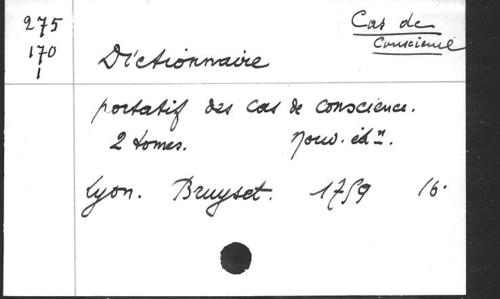 275
170
1
Cas de
Conscience
Dictionnaire
portatif des cas de conscience.
2 tomes. Nouv. édn.
Lyon. Bruyset. 1759 16.